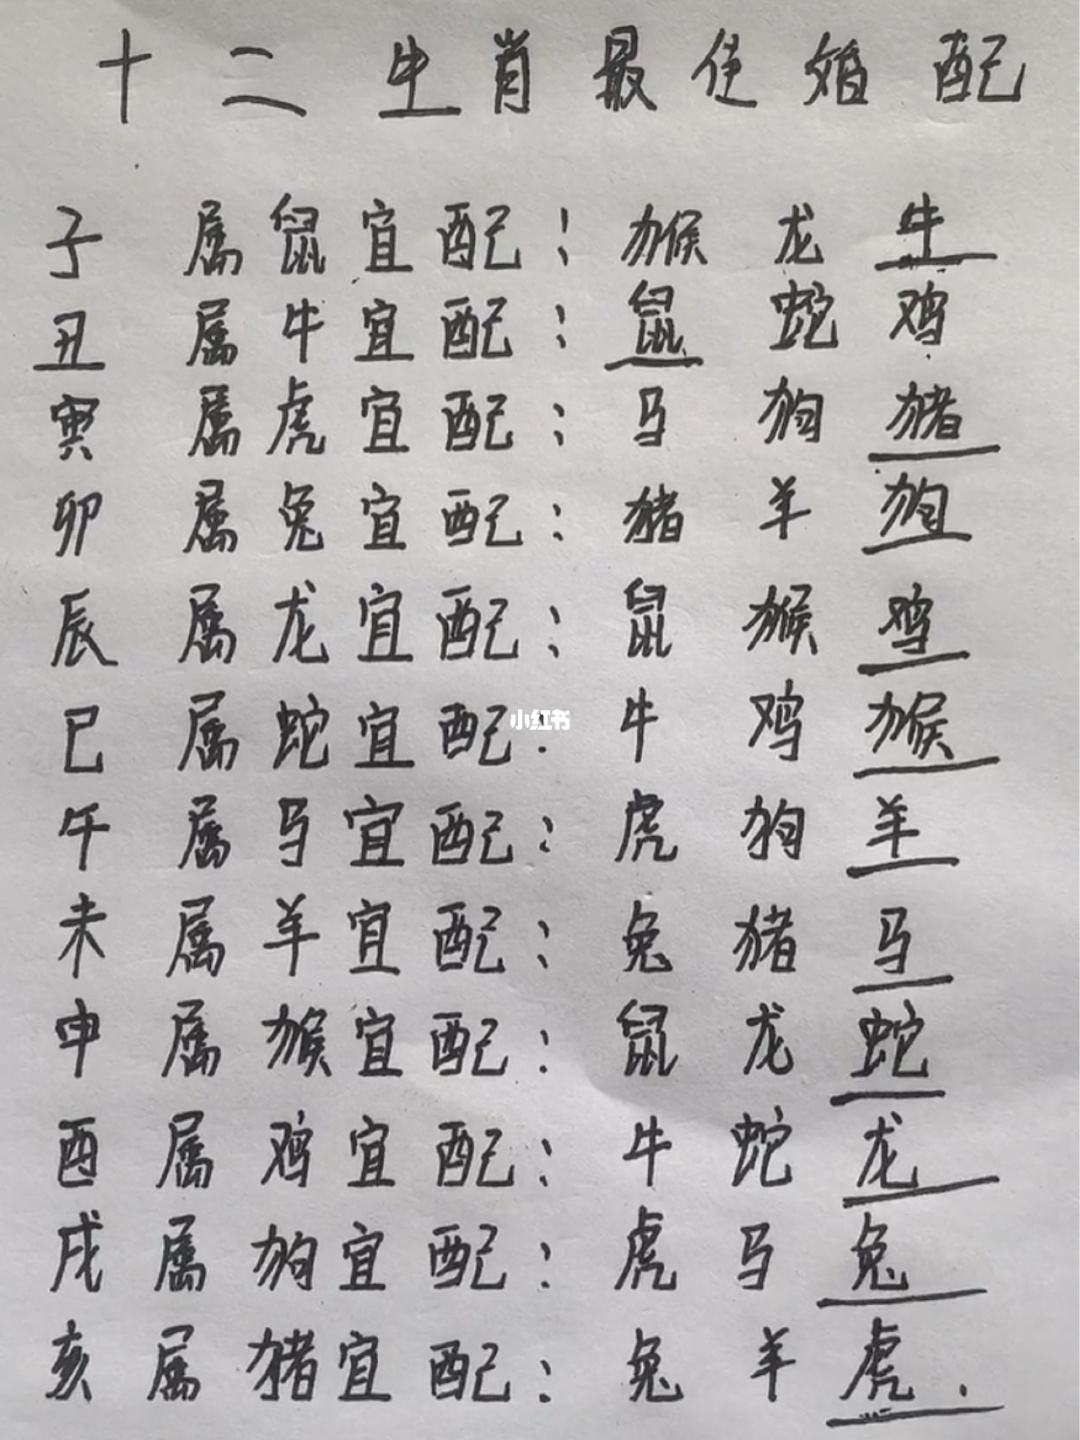 十二生肖最佳婚配
子 属鼠宜配：猴 龙 牛
丑 属牛宜配：鼠 蛇 鸡
寅 属虎宜配：马 狗 猪
卯 属兔宜配：猪 羊 狗
辰 属龙宜配：鼠 猴 鸡
巳 属蛇宜配：牛 鸡 猴
小红书
午 属马宜配：虎 狗 羊
未 属羊宜配：兔 猪 马
申 属猴宜配：鼠 龙 蛇
酉 属鸡宜配：牛 蛇 龙
戌 属狗宜配：虎 马 兔
亥 属猪宜配：兔 羊 虎.